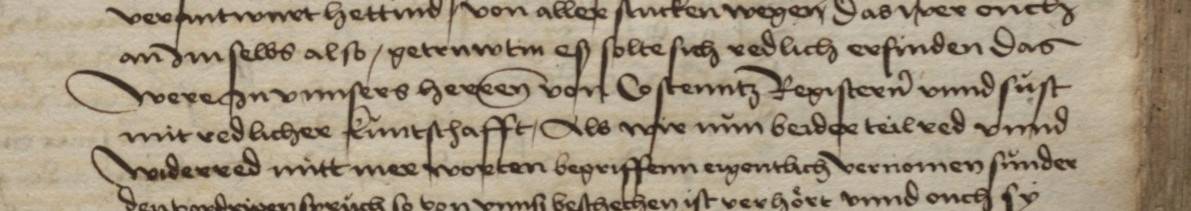 verantwurt hettind / von aller stucken wegen das wer ouch
an Im selbs also / getruwtin es solte sich redlich erfinden das
were In vnnsers herren von Costenntz Registern vnnd sust
mit redlicher kuntschafft / Als wir nun beider teil red vnnd
widerred mitt mer worten begriffenn eigentlich vernomen sunder
den vordrigen spruch so von vnns beschechen ist verhört vnnd ouch sy